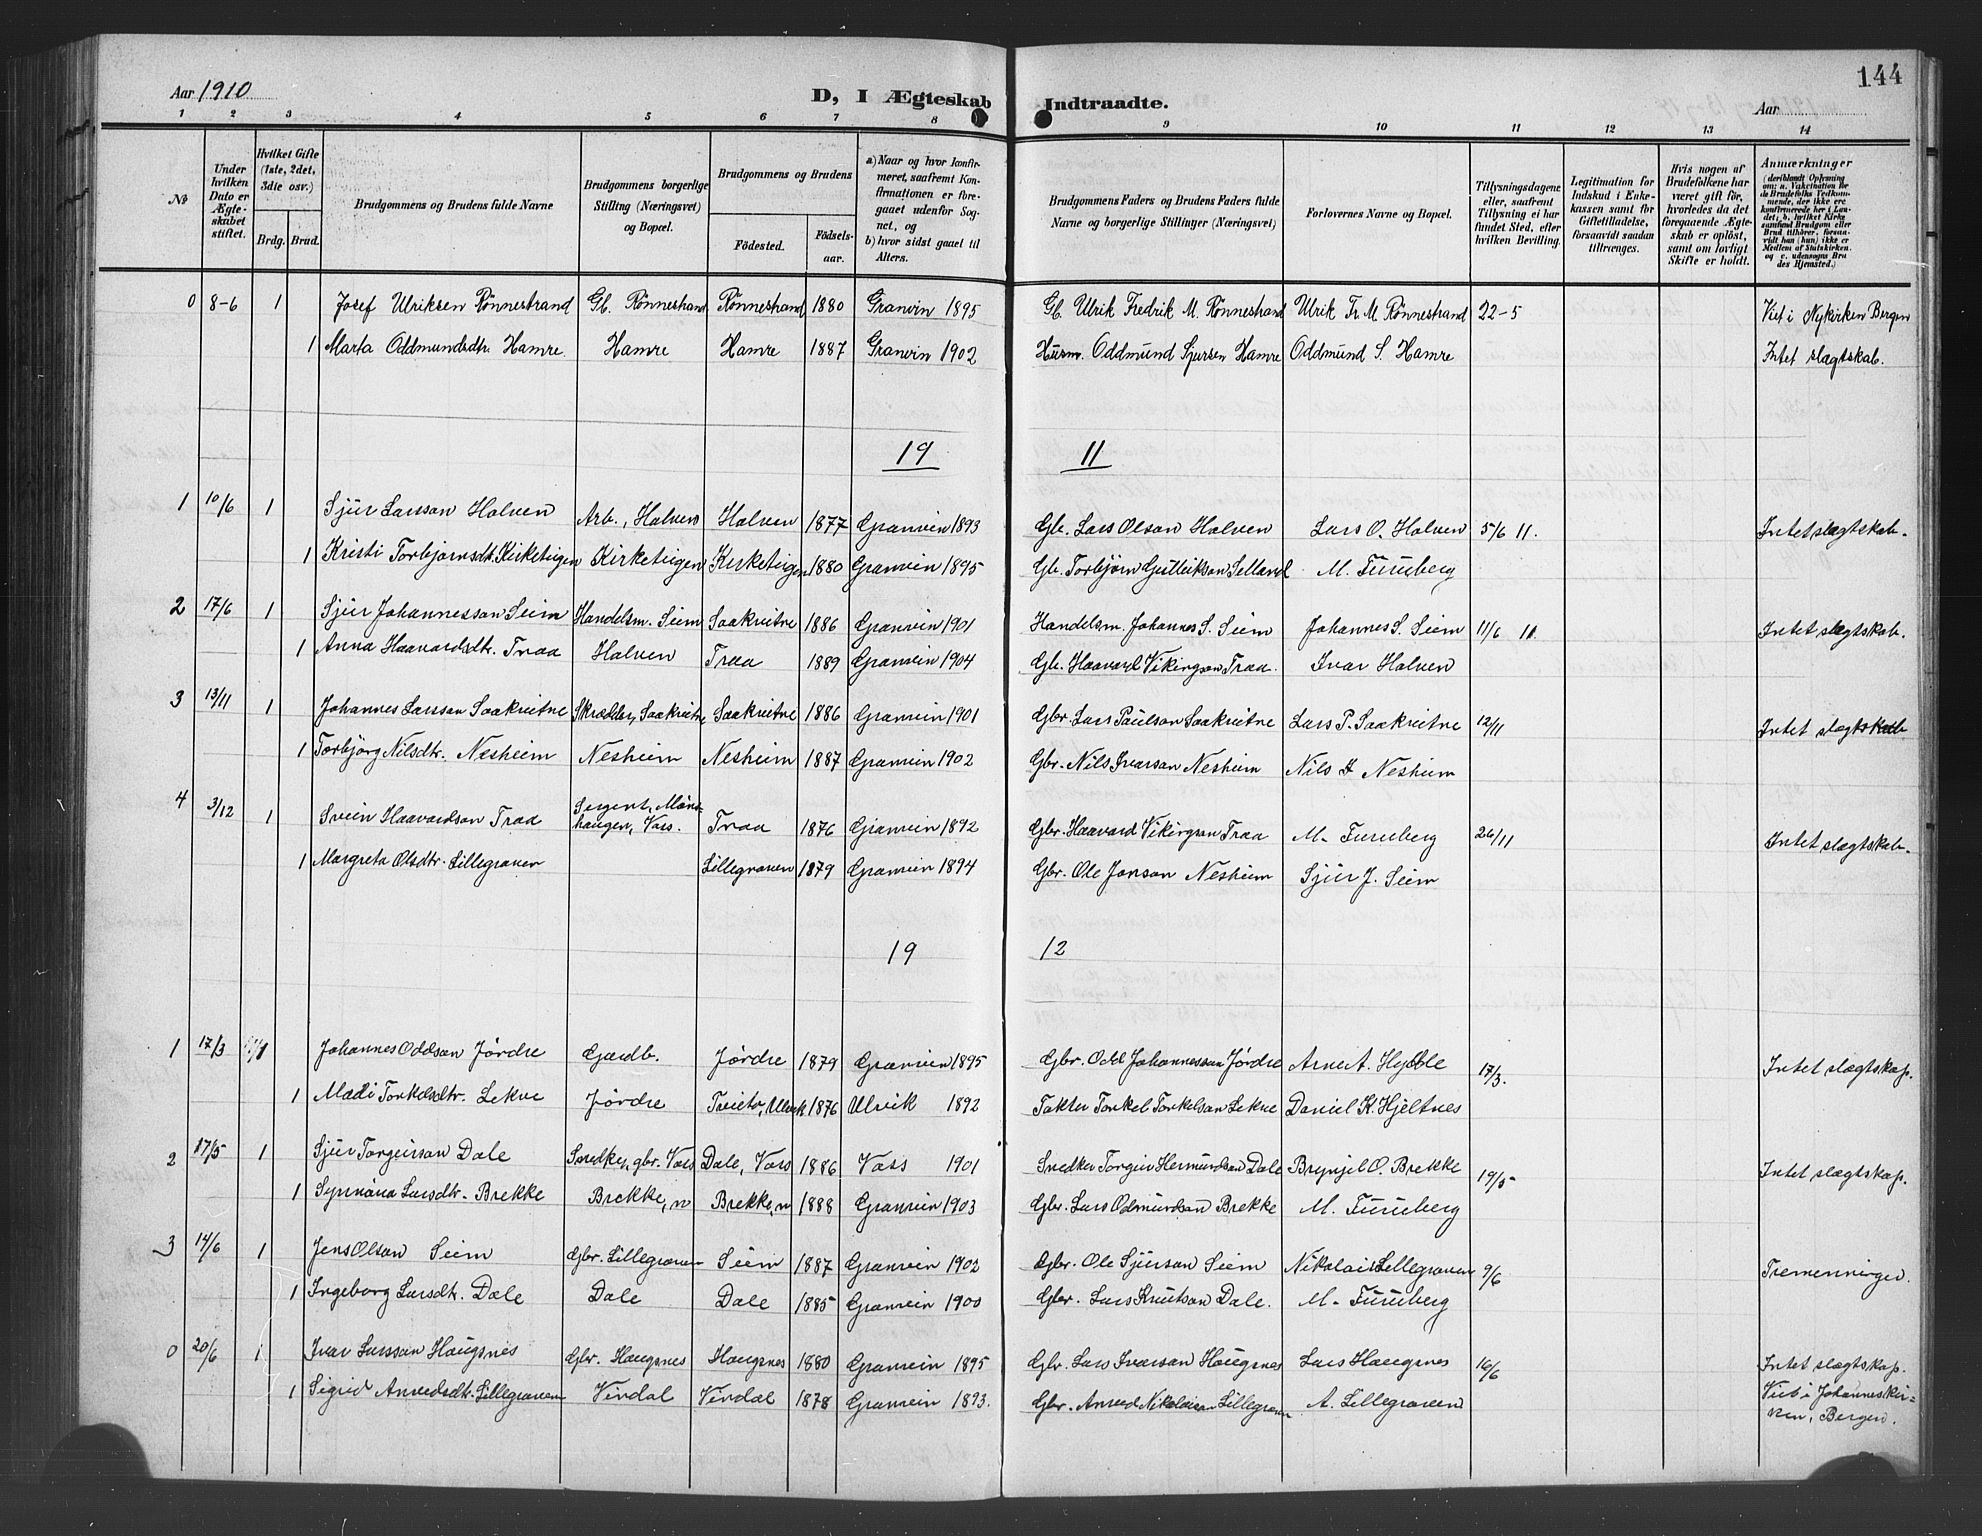 144
Aar 1910 D, I Ægteskab Indtraadte. Aar
1 2 3 4 5 6 7 8 9 10 11 12 13 14
No
Under hvilken Dato er Ægteskabet stiftet.
Hvilket Gifte (1ste, 2det, 3die osv.)
Brdg. Brud.
Brudgommens og Brudens fulde Navne
Brudgommens borgerlige Stilling (Næringsvei) og Bopæl.
Brudgommens og Brudens
Födested. Födsels-aar.
a) Naar og hvor konfirmeret, saafremt Konfirmationen er foregaaet udenfor Sognet, og
b) hvor sidst gaaet til Alters.
Brudgommens Faders og Brudens Faders fulde Navne og borgerlige Stillinger (Næringsvei)
Forlovernes Navne og Bopæl.
Tillysningsdagene eller, saafremt Tillysning ei har fundet Sted, efter hvilken Bevilling.
Legitimation for Indskud i Enkekassen samt for Giftetilladelse, forsaavidt saadan tiltrænges.
Hvis nogen af Brudefolkene har været gift før, hvorledes da det foregaaende Ægteskab er oplöst, samt om lovligt Skifte er holdt.
Anmærkninger (deriblandt Oplysning om: a. Vakcination for de Brudefolks Vedkommende, der ikke ere konfirmerede her i Landet; b. hvilket Kirkesamfund Brudgom eller Brud tilhörer, forsaavidt han (hun) ikke er Medlem af Statskirken, og c. udensogns Brudes Hjemsted.)
0 8-6 1 Josef Ulriksen Rønnestrand Gb. Rønnestrand Rønnestrand 1880 Granvin 1895 Gb. Ulrik Fredrik M. Rønnestrand Ulrik Fr. M. Rønnestrand 22-5 Viet i Nykirken Bergen
1 Marta Oddmundsdtr. Hamre. Hamre Hamre 1887 Granvin 1902 Husm. Oddmund Sjursen Hamre Oddmund S. Hamre Intet slægtskab.
19 11
1 10/6 1 Sjur Larsson Halven Arb., Halven Halven 1877 Granvin 1893 Gb. Lars Olson Halven Lars O. Halven 5/6 11. Intet slægtskab.
1 Kristi Torbjørnsdt. Kirketeigen Kirketeigen Kirketeigen 1880 Granvin 1895 Gb. Torbjørn Gulleikson Selland M. Furuberg
2 17/6 1 Sjur Johannesson Seim Handelsm. Seim Saakvitne 1886 Granvin 1901 Handelsm. Johannes S. Seim Johannes S. Seim 11/6 11. Intet slægtskab.
1 Anna Haavardsdtr. Traa Halven Traa 1889 Granvin 1904 Gb. Haavard Vikingson Traa. Ivar Halven
3 13/11 1 Johannes Larsson Saakvitne Skrædder, Saakvitne Saakvitne 1886 Granvin 1901 Gbr. Lars Paulson Saakvitne Lars P. Saakvitne 12/11 Intet slægtskab
1 Torbjørg Nilsdtr. Nesheim Nesheim Nesheim 1887 Granvin 1902 Gbr. Nils Ivarson Nesheim Nils I. Nesheim
4 3/12 1 Svein Haavardson Traa Sergent, Møns-haugen, Voss. Traa 1876 Granvin 1892 Gbr. Haavard Vikingson Traa M. Furuberg 26/11 Intet slægtskab.
1 Margreta Olsdtr. Lillegraven Lillegraven 1879 Granvin 1894 Gbr. Ole Jonson Nesheim Sjur J. Seim
19 12
1 17/3 1 Johannes Oddson Jørdre Gardb. Jørdre 1879 Granvin 1895 Gbr. Odd Johannesson Jørdre Arne A. Hylle 17/3. Intet slægtskap.
1 Madi Torkelsdtr. Lekve Jørdre Tveito, Ulvik 1876 Ulvik 1892 Takter Torkel Torkelson Lekve Daniel K. Hjeltnes
2 17/5 1 Sjur Torgeirson Dale Snedker, gbr. Voss Dale, Voss 1886 Voss 1901 Snedker Torgeir Hermundson Dale Brynjel O. Brekke 19/5 Intet slægtskap.
1 Synnøva Larsdtr. Brekke Brekke, n Brekke, n 1888 Granvin 1903 Gbr. Lars Odmundson Brekke M. Furuberg
3 14/6 1 Jens Olson Seim Gbr. Lillegraven Seim 1887 Granvin 1902 Gbr. Ole Sjurson Seim Nikolai Lillegraven 9/6 Tremenninger.
1 Ingeborg Larsdtr. Dale Dale Dale 1885 Granvin 1900 Gbr. Lars Knutson Dale. M. Furuberg
0 20/6 1 Ivar Larsson Haugsnes Gbr. Haugsnes Haugsnes 1880 Granvin 1895 Gbr. Lars Ivarson Haugsnes Lars Haugsnes 16/6 Intet slægtskap.
1 Sigrid Anvedsdtr. Lillegraven Virdal Virdal 1878 Granvin 1893. Gbr. Anved Nikolaison Lillegraven A. Lillegraven Viet i Johanneskir-ken, Bergen.